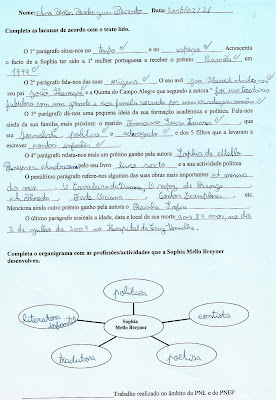 Nome: Ana Data: 2008/02/26
Completo as lacunas de acordo com o texto lido.
O 1º parágrafo situa-nos no tempo e no espaço. Acrescenta
o facto de a Sophia ter sido a 1ª mulher portuguesa a receber o prémio Camões em
1999.
O 2º parágrafo fala-nos das suas origens. O seu avô Jan Henrik
seu pai João Henrique e a Quinta do Campo Alegre que segundo a autora " foi um território
fabuloso com uma grande e rica família servida por uma criadagem numerosa"
O 3º parágrafo dá-nos uma pequena ideia da sua formação académica e política. Fala-nos
ainda da sua família, mais próxima: o marido Francisco Sousa Tavares que
era jornalista, político e advogado e dos 5 filhos que a levaram a
escrever contos infantis.
O 4º parágrafo relata-nos mais um prémio ganho pela autora Sophia de Mello
Breyner Andresen pelo seu livro livro sexto e a sua actividade política
O penúltimo parágrafo refere-nos algumas das suas obras mais importantes: A menina
do mar, O Cavaleiro da Dinamarca, O rapaz de Bronze,
A Floresta, Fada Oriana, Contos Exemplares, etc.
Menciona ainda outro prémio ganho pela autora o Rainha Sofia
O último parágrafo assinala a idade, data e local da sua morte aos 84 anos, no dia
2 de julho de 2004 no Hospital da Cruz Vermelha.
Completa o organigrama com as profissões/actividades que a Sophia Mello Breyner
desenvolveu.
política
literatura infantil
contista
Sophia
Mello Breyner
tradutora
poetisa
Trabalho realizado no âmbito do PNL e do PNEP